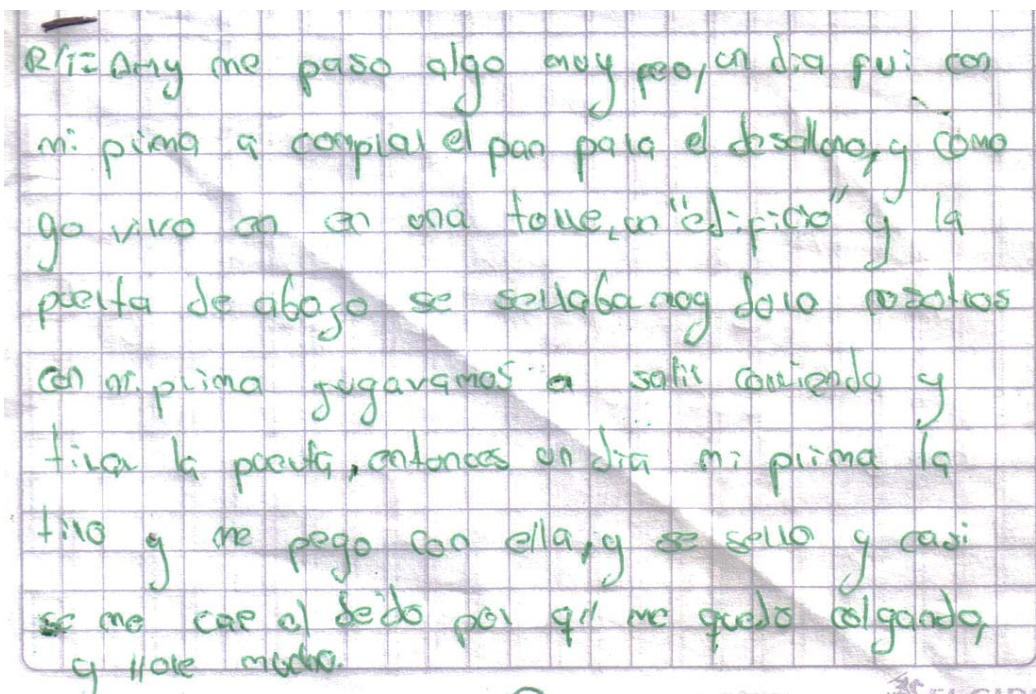 R/1= Amy me paso algo muy feo, un dia fui con
mi prima a comprar el pan para el desalluno, y como
yo vivo en en una torre, un "edificio" y la
puerta de abajo se serraba muy duro nosotros
con mi prima jugavamos a salir corriendo y
tirar la puerta, entonces un dia mi prima la
tiro y me pego con ella, y se serro y casi
se me cae el dedo por qu me quedo colgando,
y llore mucho.